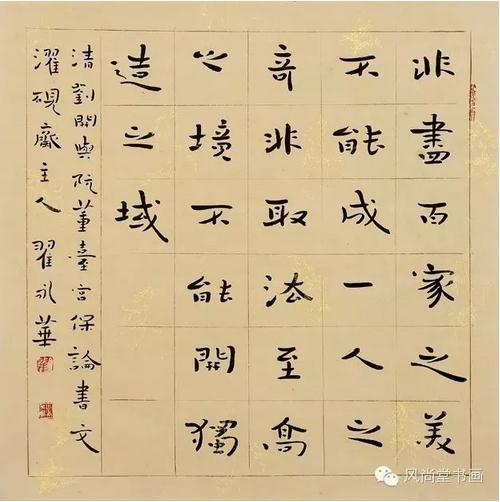 非盡百家之美
不能成一人之
奇非取法至高
之境不能開獨
造之域
清劉開與阮董臺宮保論書文
濯硯齋主人 翟永華
风尚堂书画